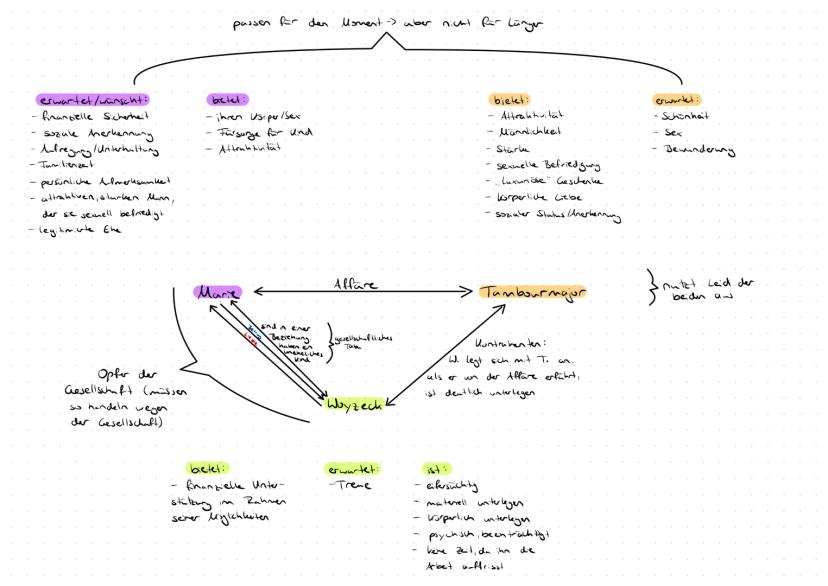 passen für den Moment → aber nicht für länger
erwartet/wünscht:
- finanzielle Sicherheit
- soziale Anerkennung
- Aufregung/Unterhaltung
- Familienzeit
- persönliche Aufmerksamkeit
- attraktiven, starken Mann,
der sie sexuell befriedigt
- legitimierte Ehe
bietet:
- ihren Körper/Sex
- Fürsorge für Kind
- Attraktivität
bietet:
- Attraktivität
- Männlichkeit
- Stärke
- sexuelle Befriedigung
- „luxuriöse" Geschenke
- körperliche Liebe
- sozialer Status/Anerkennung
erwartet:
- Schönheit
- Sex
- Bewunderung
Marie
Affäre
Tambourmajor
nutzt Leid der
beiden aus
sind in einer
Beziehung,
haben ein
uneheliches
Kind
gesellschaftliches
Tabu
Liebe
Kontrahenten:
W. legt sich mit T. an,
als er von der Affäre erfährt,
ist deutlich unterlegen
Opfer der
Gesellschaft (müssen
so handeln wegen
der Gesellschaft)
Woyzeck
bietet:
- finanzielle Unter-
stützung im Rahmen
seiner Möglichkeiten
erwartet:
- Treue
ist:
- eifersüchtig
- materiell unterlegen
- körperlich unterlegen
- psychisch beeinträchtigt
- keine Zeit, da ihn die
Arbeit auffrisst